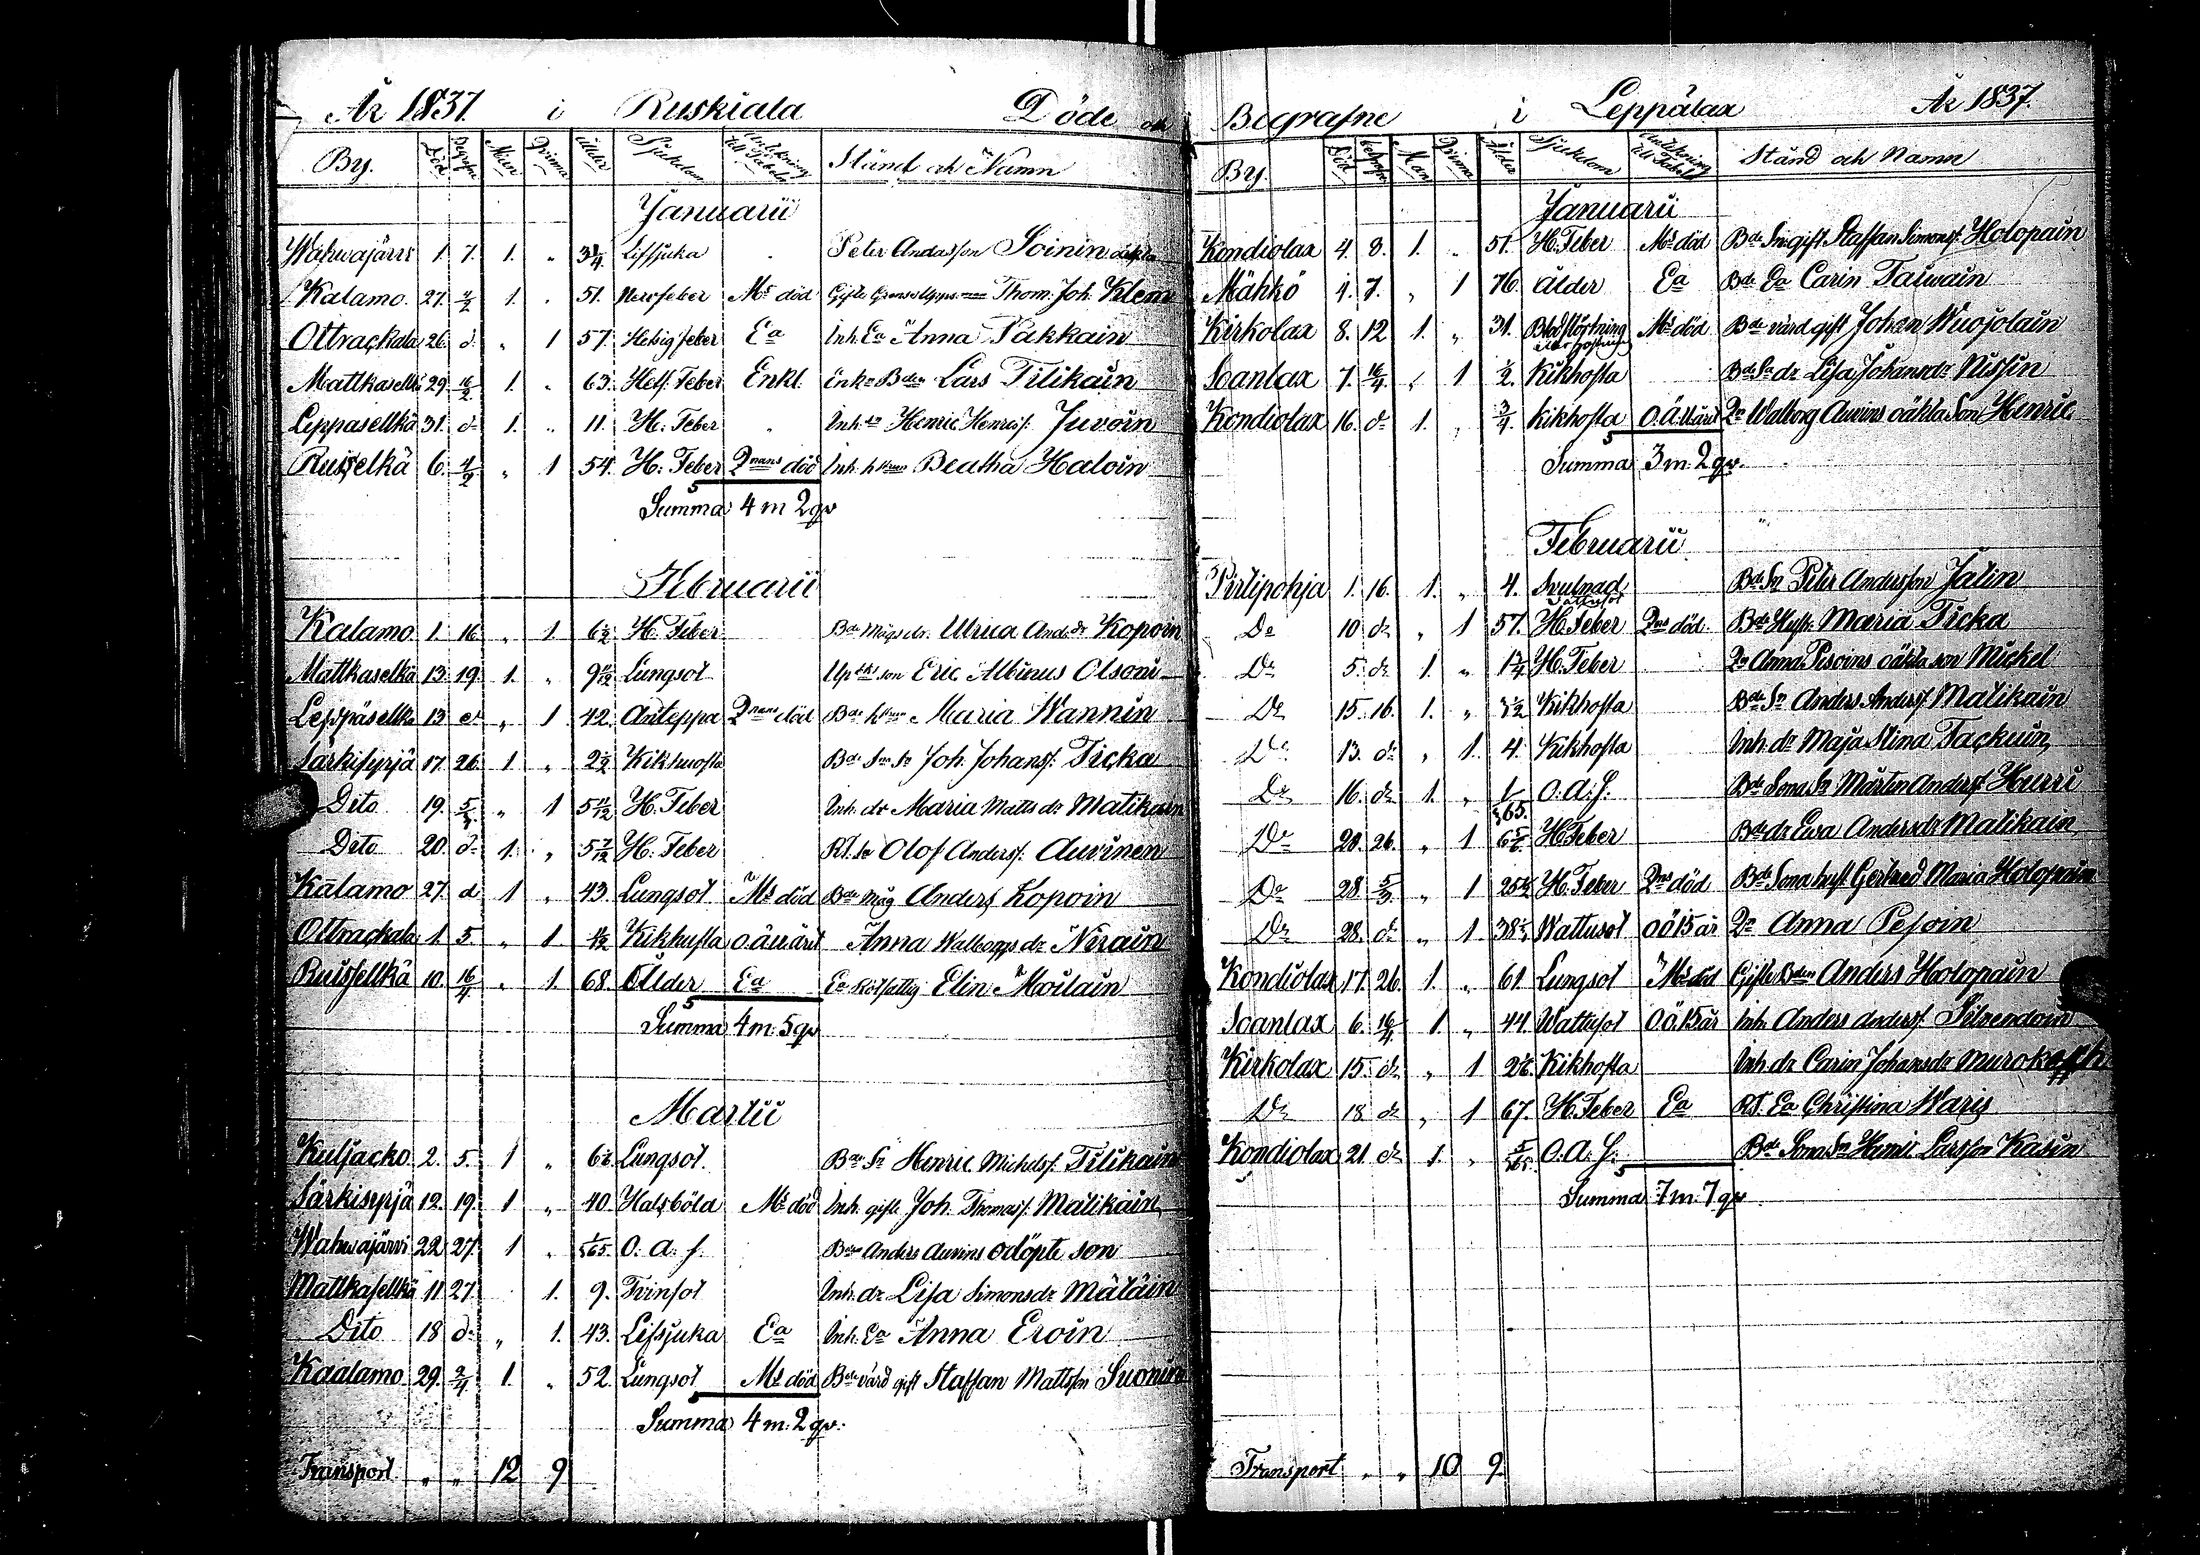 År 1837. i Ruskiala Döde och
By. Död Begrafne Män Qvinna Ålder Sjukdom Anteckning till Tabell Stånd och Namn
Januarii
Wahwajärvi 1. 7. 1. " 3/4 Lifsjuka Peter Andersson Soinin
Kalamo. 27. 1. " 51. Nervfeber Ms död Gifte Thom. Joh. Klem
Ottrackala 26. d: " 1 57. Hetsig feber Ea Inh. Ea Anna Pakkain
Mattkaselkä 29. 16/2 1. " 63. Hets. Feber Enkl. Enkl. Bden Lars Tilikain
Leppaselkä 31. d: 1. " 11. H. Feber Inh. sn Henric Henrics. Juvoin
Ruisselkä 6. 4/2 " 1 54. H. Feber Qnans död Inh. hkun Beatha Haloin
Summa 4 m 2 qv
Februarii
Kalamo 1. 16 " 1. 6 1/2 H. Feber Bde Mågs dr. Ulrica And. dr Kopoin
Mattkaselkä 13. 19. 1. " Lungsot son Eric Albinus Olsoni
Leppäselkä 13 d " 1 42. Anteppa Qnans död Bde hkun Maria Wannin
Särkisyrjä 17. 26. 1. " 2 1/2 Kikhosta Bde Sns Sn Joh. Johans. Ticka
Dito 19. 5/3 " 1 5 11/12 H. Feber Inh. dr Maria Matts dr Matikain
Dito 20. d: 1. " 5 7/12 H. Feber RT. Sn Olof Anders. Auvinen
Kalamo 27. d 1 " 43. Lungsot Ms död Bde Måg Anders Kopoin
Ottrackala 1. 5. " 1 Kikhosta o.ä. Anna Walborgs dr Nirain
Ruisselkä 10. 16/4 " 1. 68. Ålder Ea Ea Rotfattig Elin Moilain
Summa 4 m. 5 qv
Martii
Kuljacko. 2. 5. 1 " Lungsot. Bde Sn Henric Michels. Tilikain
Särkisyrjä 12. 19. 1 " 40. Halsböld Ms död Inh. gifte Joh. Thomas. Matikain
Wahwajärvi 22. 27. 1 " 1/365. O. a. f. Bden Anders Auvins odöpte son
Mattkaselkä 11 27. 1. 9. Tvinsot Inh. dr Lisa Simonsdr Mätäin
Dito 18 d: " 1. 43. Lifsjuka Ea Inh. Ea Anna Eroin
Kaalamo 29. 2/4 1. " 52. Lungsot Ms död Bde värd gift Staffan Mattsson Suonin
Summa 4 m. 2 qv.
Transport " " 12 9
Begrafne i Leppälax År 1837.
By. Död begrafne Män Qvinna Ålder Sjukdom Anteckning till Tabell Stånd och Namn
Januarii
Kondiolax 4. 8. 1. " 51. H. Feber Ms död Bde Sn gift Staffan Simons. Holopain
Mähkö 4. 7. " 1 76. ålder Ea Bde Ea Carin Taiwain
Kirkolax 8. 12 1. " 31. Blodstörtning Ms död Bde värd gift Johan Wuojolain
Soanlax 7. 16/4 " 1 1/2. Kikhosta Bde Sn dr Lisa Johansdr Nissin
Kondiolax 16. d: 1. " 3/4. Kikhosta Qn Walborg Auvins oäkta Son Henric
Summa 3 m. 2 qv.
Februarii
Pirtipohja 1. 16. 1. " 4. Svulnad Wattusot Bde Sn Peter Andersson Jalin
Do 10 d: " 1 57. H. Feber Qns död. Bde Hustr. Maria Ticka
Do 5. d: 1. " H. Feber Qn Anna Piscoins oäkta son Mickel
Do 15. 16. 1. " Kikhosta Bde Sn Anders Anders. Matikain
Do 13. d: " 1. 4. Kikhosta Inh. dr Maja Stina Tackuin
Do 16. d: 1. " 1/365. O. a. f. Bde Sona Sn Mårten Anders. Hurri
Do 20. 26. " 1 H. Feber Bde dr Ewa Andersdr Matikain
Do 28 5/3 " 1 H. Feber Qns död Bde Sona hust. Gertrud Maria Holopain
Do 28. d: " 1. Wattusot O ö 15 år Qn Anna Pesoin
Kondiolax 17. 26. 1. " 61 Lungsot Ms död Gifte Bden Anders Holopain
Soanlax 6. 16/4 1 " 44. Wattusot O ö. 15 år Inh. Anders Anders. Silvendoin
Kirkolax 15. d: " 1 Kikhosta Inh. dr Carin Johansdr
Do 18 d: " 1 67. H. Feber Ea RT. Ea Christina Waris
Kondiolax 21 d: 1. " 5/365. O. a. f. Bde Sona Sn Henric Larsson Kasin
Summa 7 m. 7 qv
Transport " " 10 9.